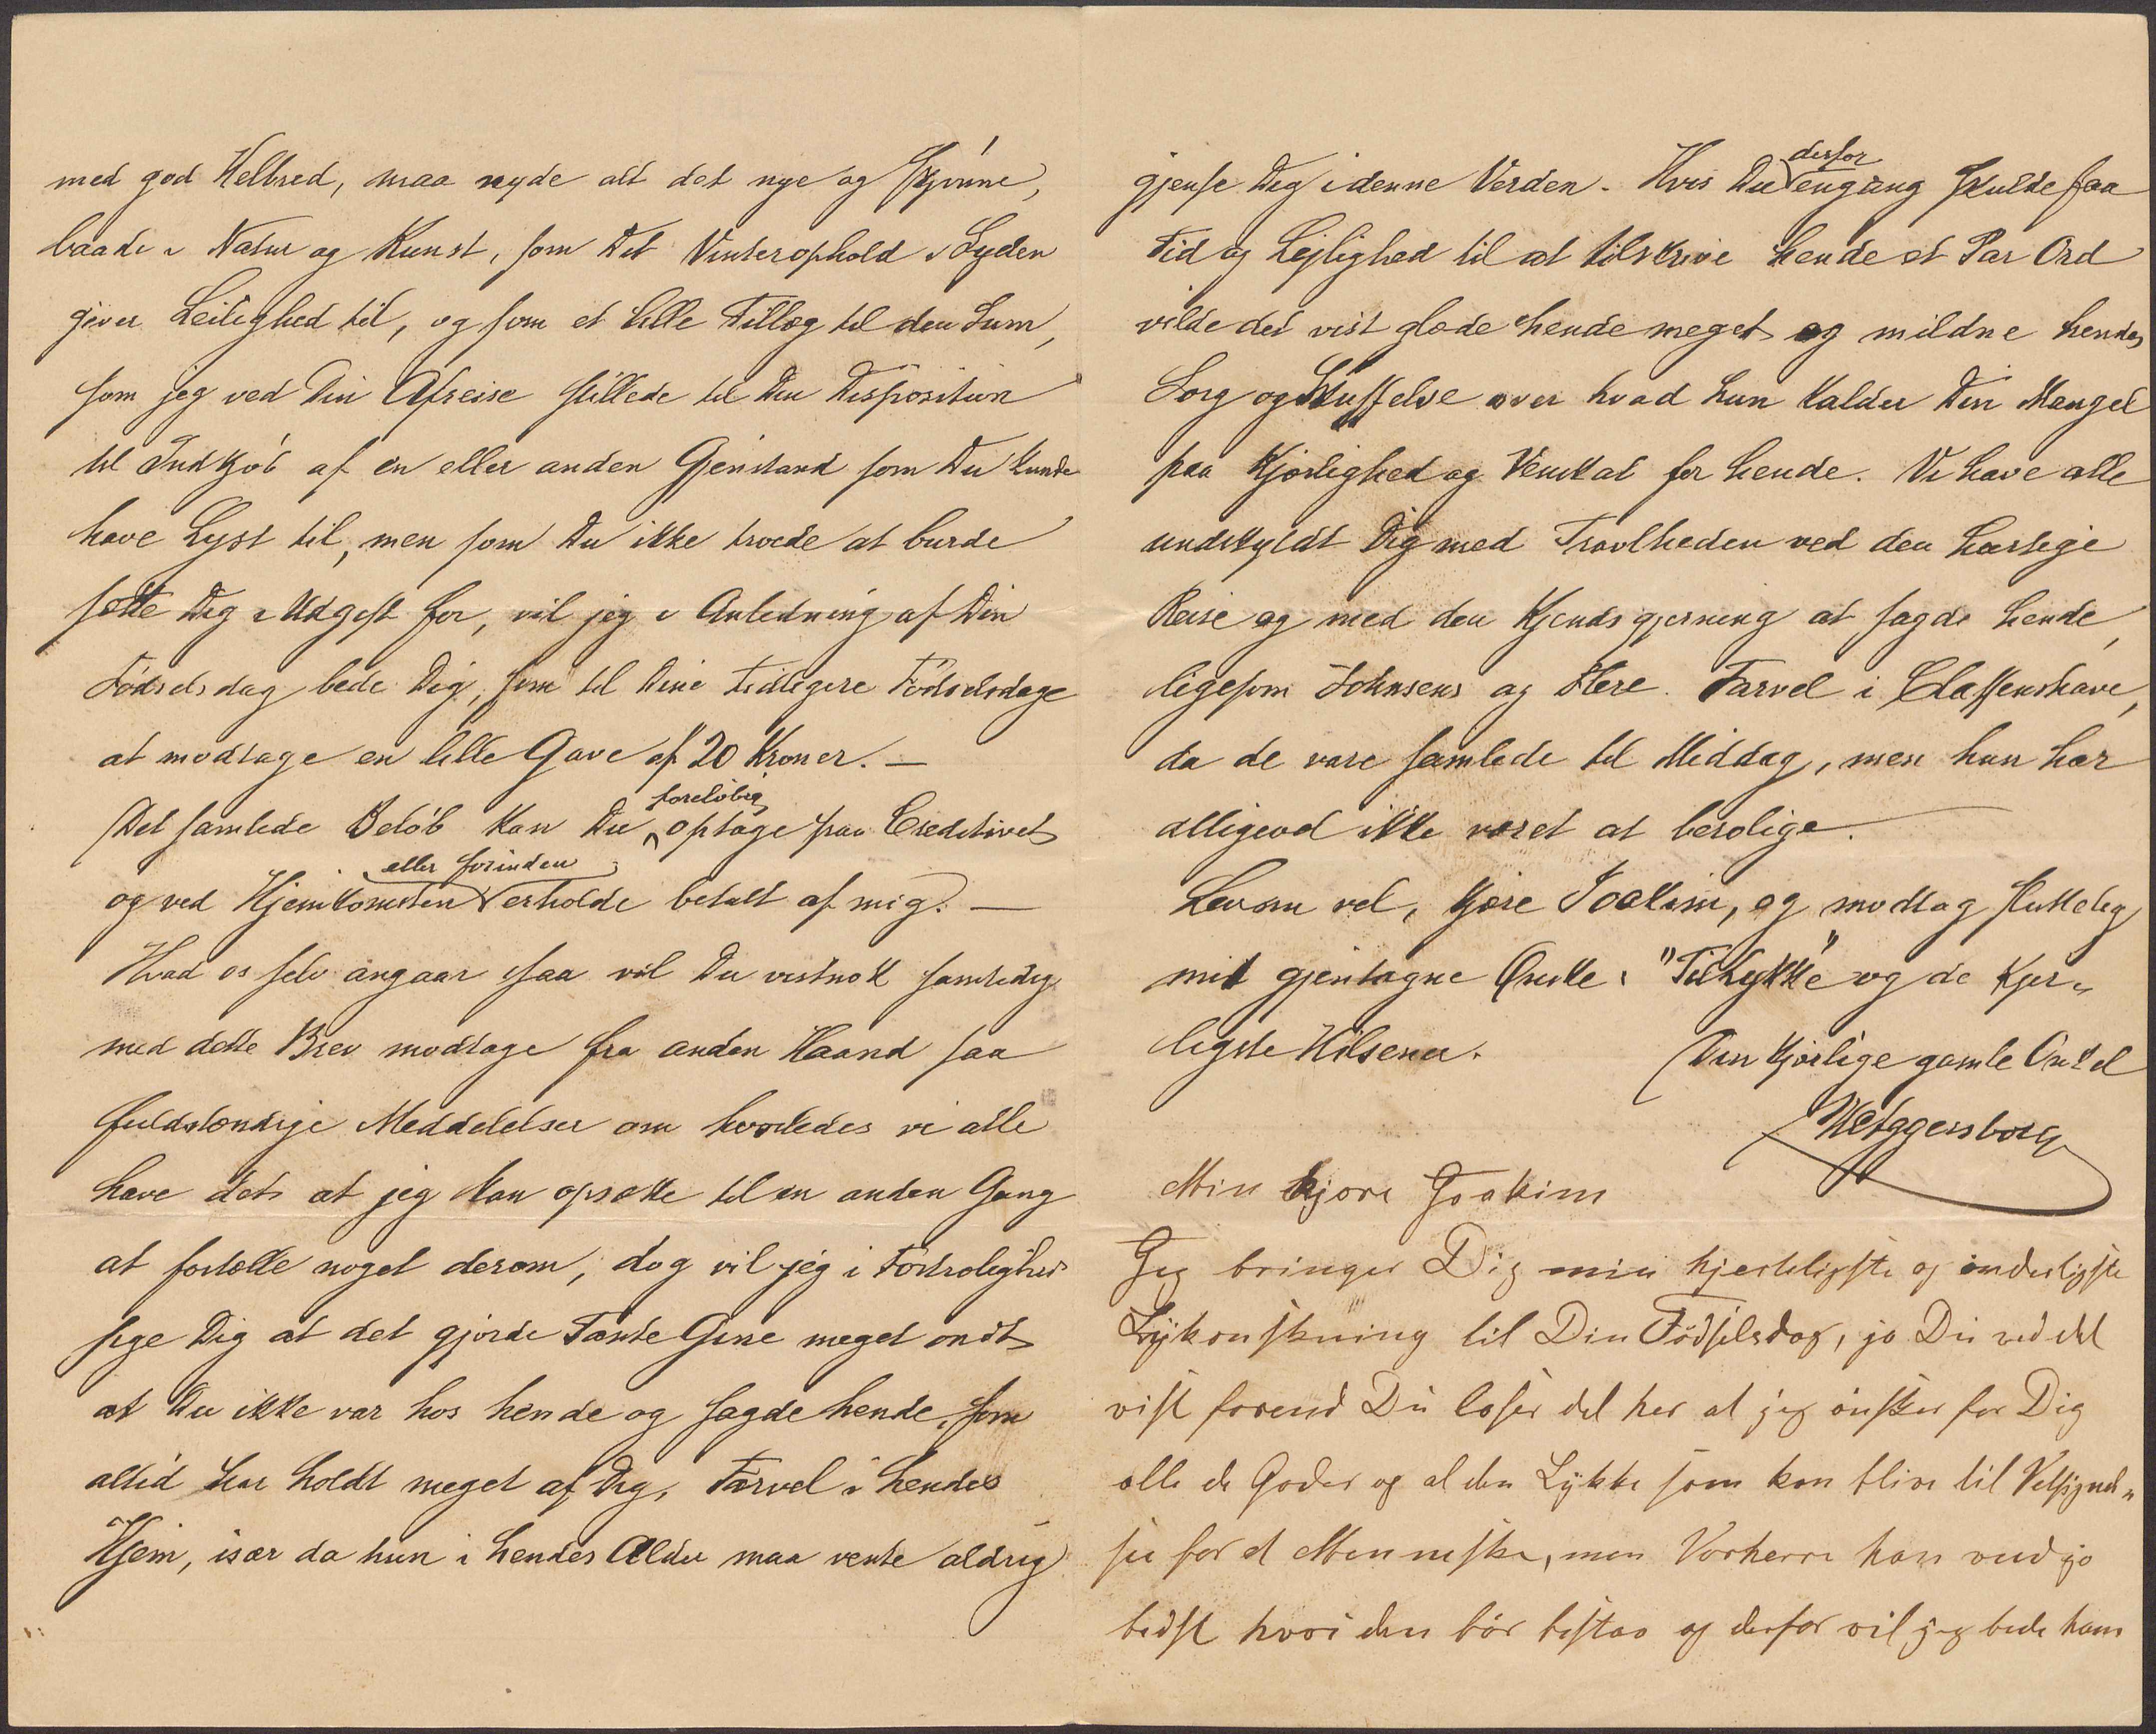 med god Helbred, maa nyde alt det nye og skjönne,
baade i Natur og Kunst, som Dit Vinterophold i Syden
giver Leilighed til, og som et lille Tillæg til den Sum,
som jeg ved Din Afreise stillede til Din Disposition
til Indkjöb af en eller anden Gjenstand som Du kunde
have Lyst til, men som Du ikke troede at burde
sætte Dig i Udgift for, vil jeg i Anledning af Din
Födselsdag bede Dig, som til Dine tidligere Födselsdage
at modtage en lille Gave af 20 Kroner. —
Det samlede Belöb kan Du foreløbig optage paa Creditivet
og ved Hjemkomsten eller forinden erholde betalt af mig. —
Hvad os selv angaar saa vil Du vistnok samtidig
med dette Brev modtage fra anden Haand saa
fuldstændige Meddelelser om hvorledes vi alle
have det, at jeg kan opsætte til en anden Gang
at fortælle noget derom, dog vil jeg i Fortrolighed
sige Dig at det gjorde Tante Gine meget ondt
at Du ikke var hos hende og sagde hende, som
altid har holdt meget af Dig, Farvel i hendes
Hjem, især da hun i hendes Alder maa vente aldrig
gjense Dig i denne Verden. Hvis Du derfor engang skulde faa
Tid og Lejlighed til at tilskrive hende et Par Ord
vilde det vist glæde hende meget og mildne hendes
Sorg og Skuffelse over hvad hun kalder Din Mangel
paa Kjærlighed og Venskab for hende. Vi have alle
undskyldt Dig med Travlheden ved den hastige
Reise og med den Kjendsgjerning at sagde hende,
ligesom Johnsens og Flere. Farvel i Classenshave,
da de vare samlede til Middag, men hun har
alligevel ikke været at berolige.
Lev nu vel, kjære Joakim, og modtag sluttelig
mit gjentagne Önske: "Tillykke" og de kjær-
ligste Hilsener.
Din kjærlige gamle Onkel
HEggersborg
Min kjære Joakim
Jeg bringer Dig min hjerteligste og inderligste
Lykönskning til Din Födselsdag, ja Du ved det
vist förend Du læser det her at jeg önsker for Dig
alle de Goder og al den Lykke som kan blive til Velsignel-
se for et Menneske, men Vorherre han veed jo
bedst hvori den bör bestaa og derfor vil jeg bede ham